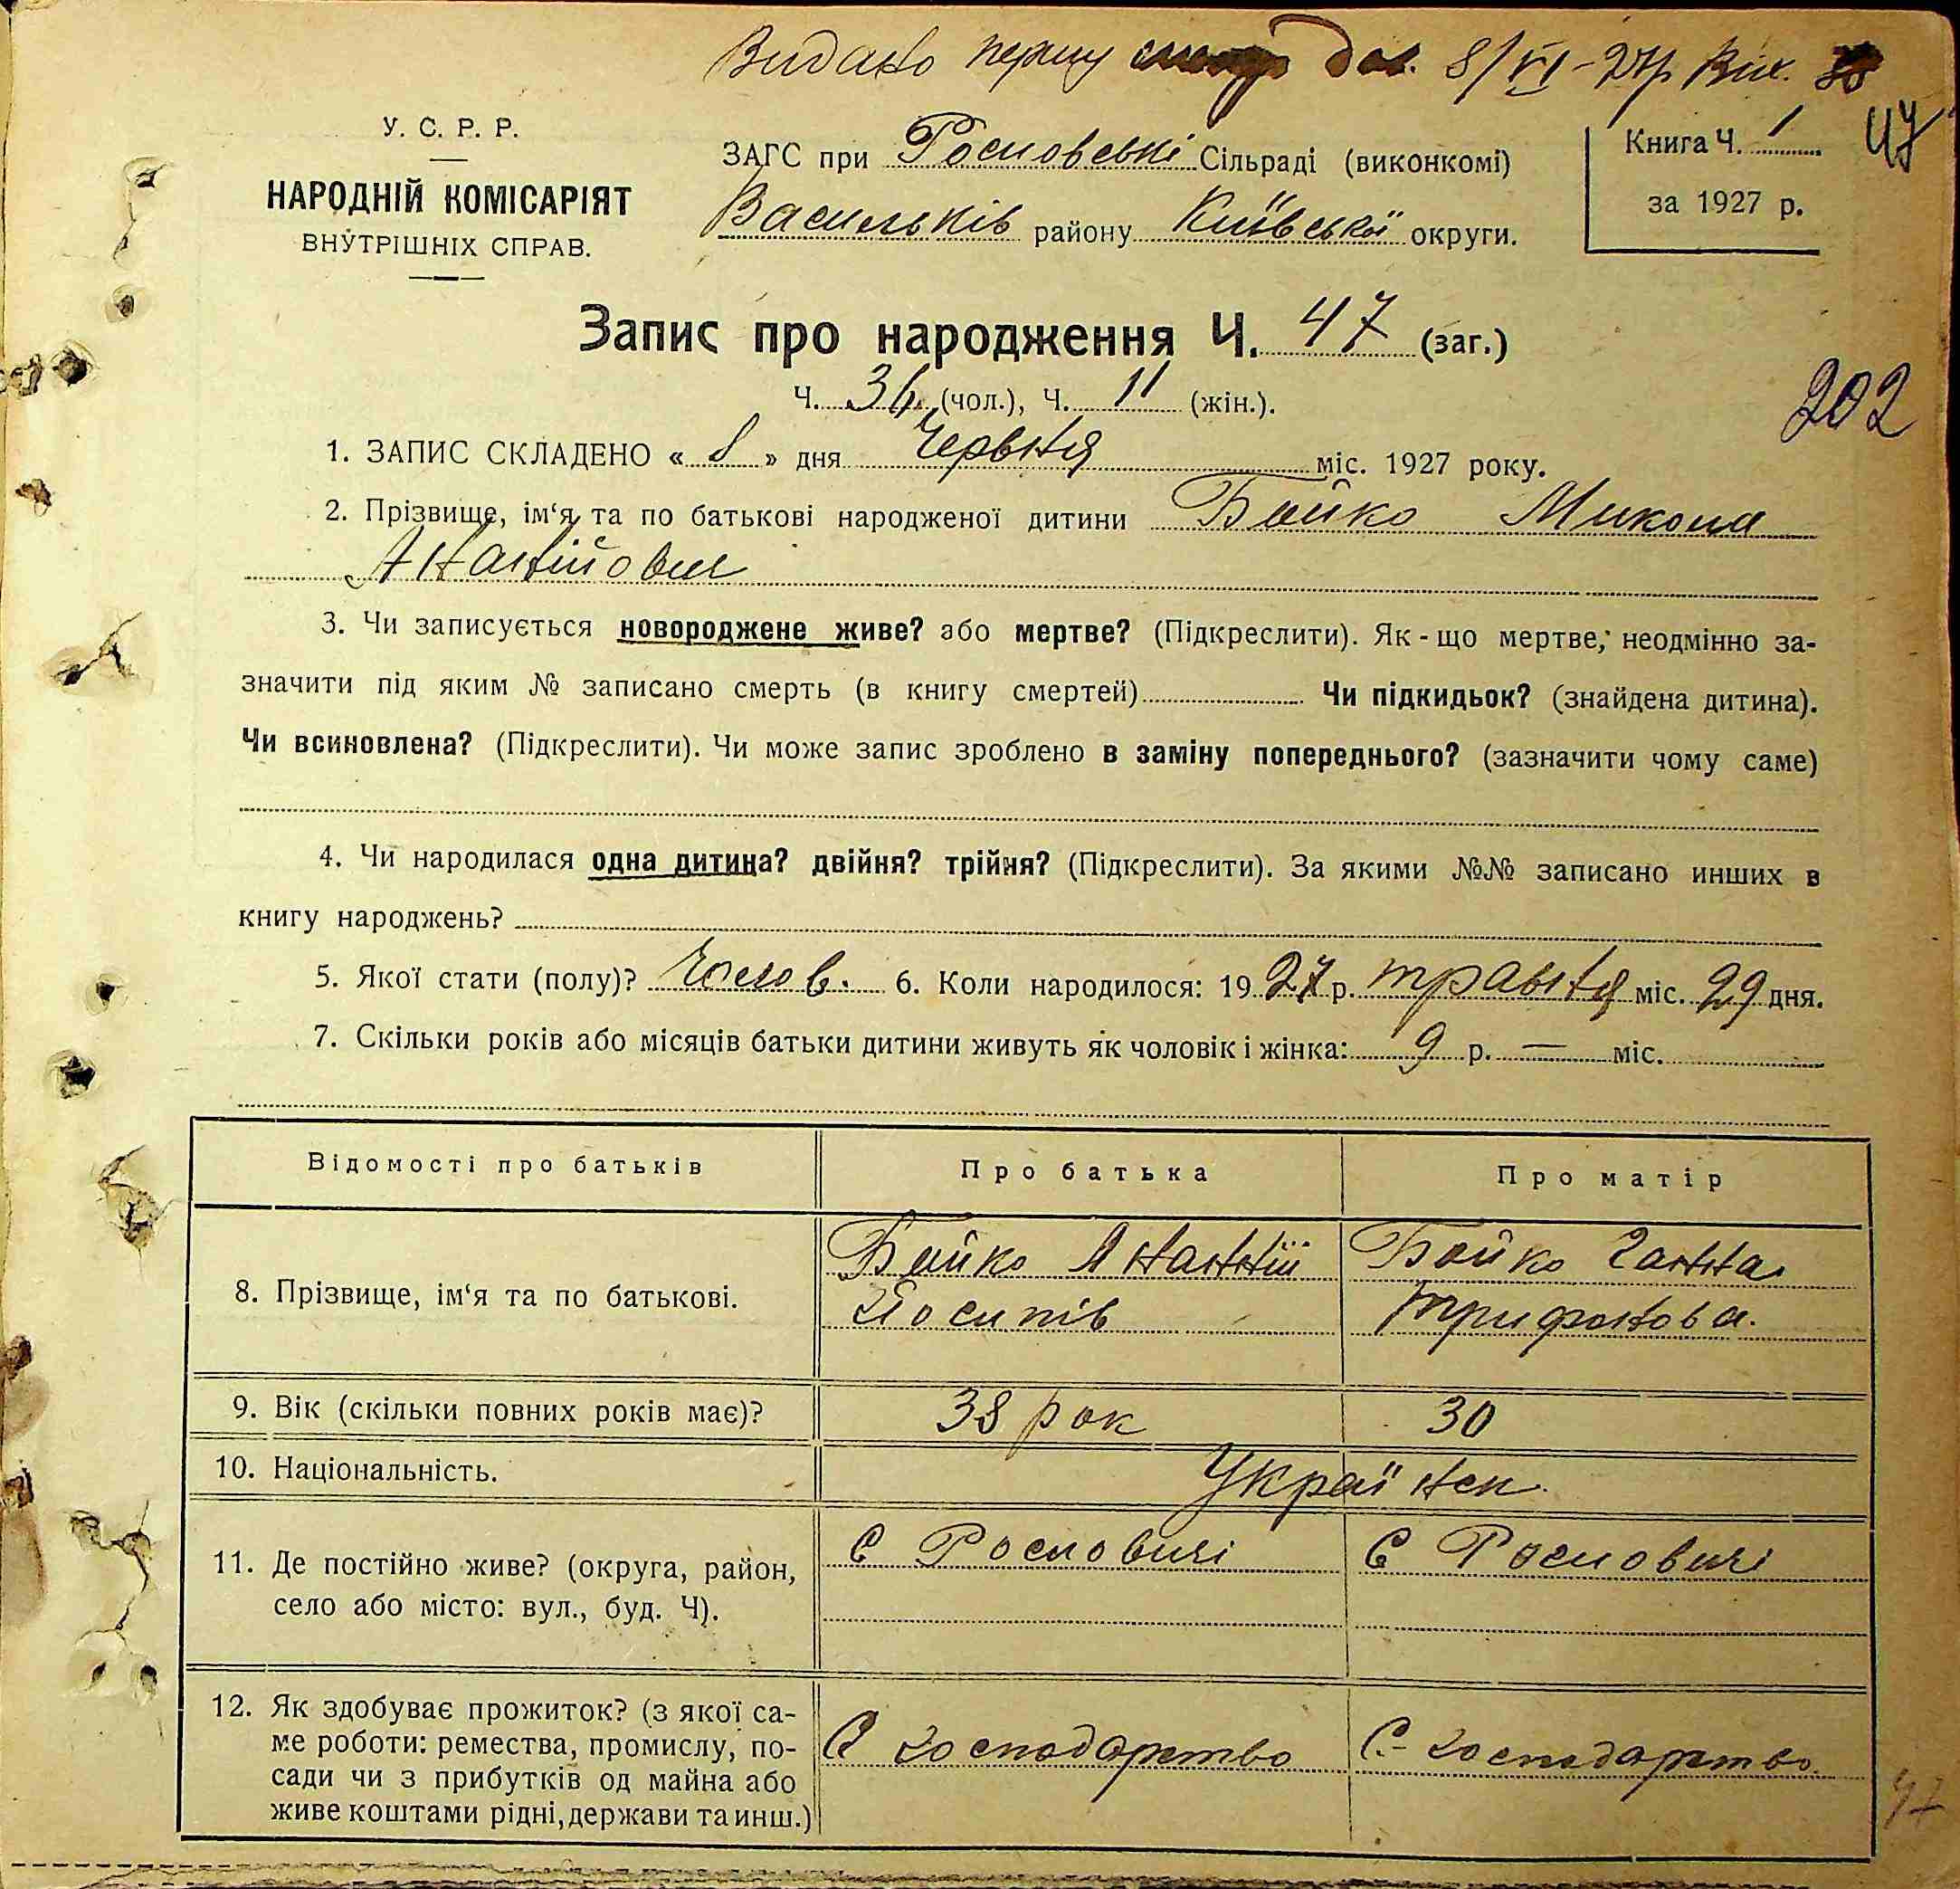 Видано першу дов. 8/VI-27р. Вих.
У. С. Р. Р.
НАРОДНІЙ КОМІСАРІЯТ
ВНУТРІШНІХ СПРАВ.
ЗАГС при Рословські Сільраді (виконкомі)
Васильків району Київської округи.
Книга Ч. 1
за 1927 р.
47
Запис про народження Ч. 47 (заг.)
Ч. 36 (чол.), Ч. 11 (жін.).
202
1. ЗАПИС СКЛАДЕНО « 8 » дня Червня міс. 1927 року.
2. Прізвище, ім‘я та по батькові народженої дитини Бойко Микола
Ананійович
3. Чи записується новороджене живе? або мертве? (Підкреслити). Як - що мертве, неодмінно за-
значити під яким № записано смерть (в книгу смертей) Чи підкидьок? (знайдена дитина).
Чи всиновлена? (Підкреслити). Чи може запис зроблено в заміну попереднього? (зазначити чому саме)
4. Чи народилася одна дитина? двійня? трійня? (Підкреслити). За якими №№ записано инших в
книгу народжень?
5. Якої стати (полу)? Чолов. 6. Коли народилося: 1927 р. травня міс. 29 дня.
7. Скільки років або місяців батьки дитини живуть як чоловік і жінка: 9 р. — міс.
Відомості про батьків Про батька Про матір
8. Прізвище, ім‘я та по батькові.
Бойко Ананній
Йосипів
Бойко Ганна
Трифонова.
9. Вік (скільки повних років має)? 38 рок 30
10. Національність. Українск.
11. Де постійно живе? (округа, район,
село або місто: вул., буд. Ч).
С Рословичі
С Рословичі
12. Як здобуває прожиток? (з якої са-
ме роботи: ремества, промислу, по-
сади чи з прибутків од майна або
живе коштами рідні, держави та инш.)
С господарство
С.- господарство
47